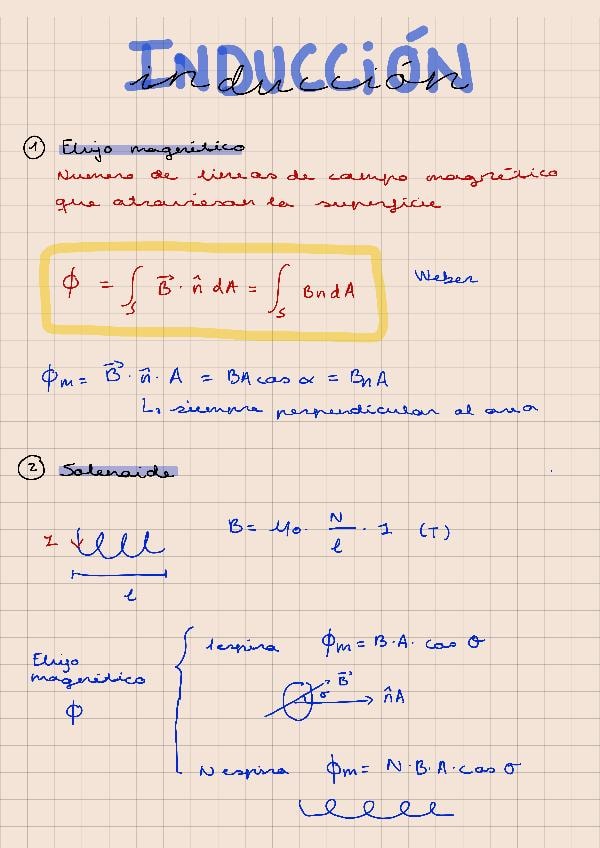 INDUCCIÓN
inducción
① Flujo magnético
Numero de lineas de campo magnético
que atraviesan la superficie
ϕ = ∫s B⃗ · n̂ dA = ∫s Bn dA
Weber
ϕm = B⃗ · n̂ · A = BA cos α = BnA
L, siempre perpendicular al area
② Solenoide
I
B = μ0 · N/l · I (T)
l
Flujo
magnético
ϕ
1 espira ϕm = B · A · cos σ
B⃗
σ
n̂A
N espira ϕm = N · B · A · cos σ